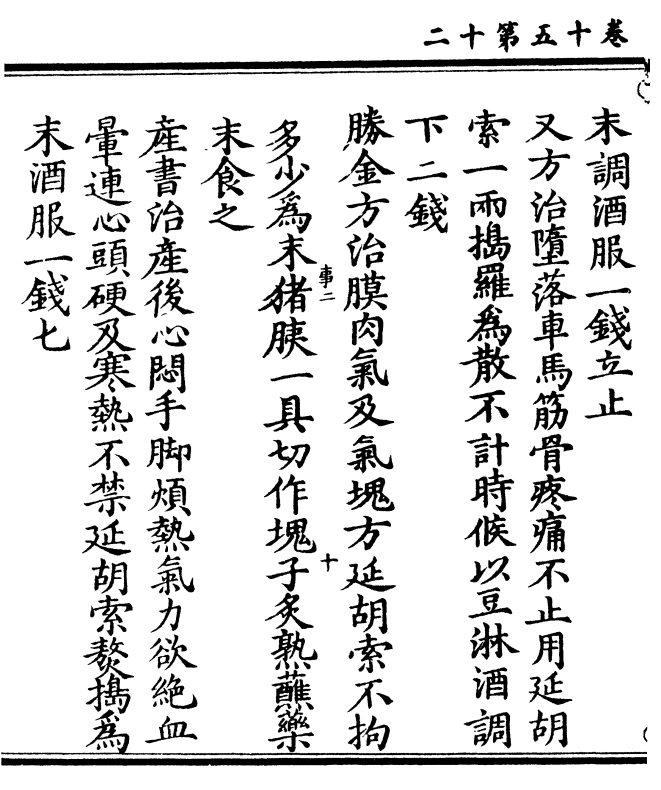 卷十五第十二
末調酒服一錢立止
又方治墮落車馬筋骨疼痛不止用延胡
索一兩搗羅爲散不計時候以豆淋酒調
下二錢
勝金方治膜肉氣及氣塊方延胡索不拘
事二
十
多少爲末猪胰一具切作塊子炙熟蘸藥
末食之
產書治產後心悶手脚煩熱氣力欲絶血
暈連心頭硬及寒熱不禁延胡索熬搗爲
末酒服一錢七